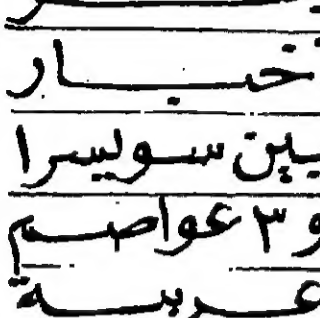 خبار
بين سويسرا
و ٣ عواصم
عربية